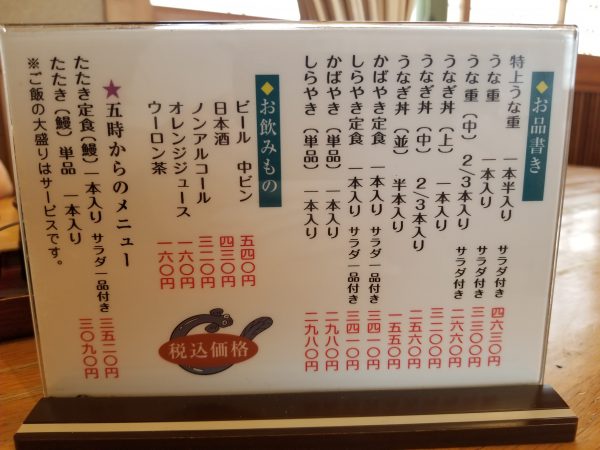 ◆お品書き
特上うな重 一本半入り サラダ付き 四六三〇円
うな重 一本入り サラダ付き 三三〇〇円
うな重（中） 2/3本入り サラダ付き 二六六〇円
うなぎ丼（上） 一本入り 三二〇〇円
うなぎ丼（中） 2/3本入り 二五六〇円
うなぎ丼（並） 半本入り 一五五〇円
かばやき定食 一本入り サラダ一品付き 三四一〇円
しらやき定食 一本入り サラダ一品付き 三四一〇円
かばやき（単品） 一本入り 二九八〇円
しらやき（単品） 一本入り 二九八〇円
◆お飲みもの
ビール 中ビン 五四〇円
日本酒 四三〇円
ノンアルコール 三二〇円
オレンジジュース 一六〇円
ウーロン茶 一六〇円
税込価格
★五時からのメニュー
たたき定食（鰻） 一本入り サラダ一品付き 三五二〇円
たたき（鰻）単品 一本入り 三〇九〇円
※ご飯の大盛りはサービスです。